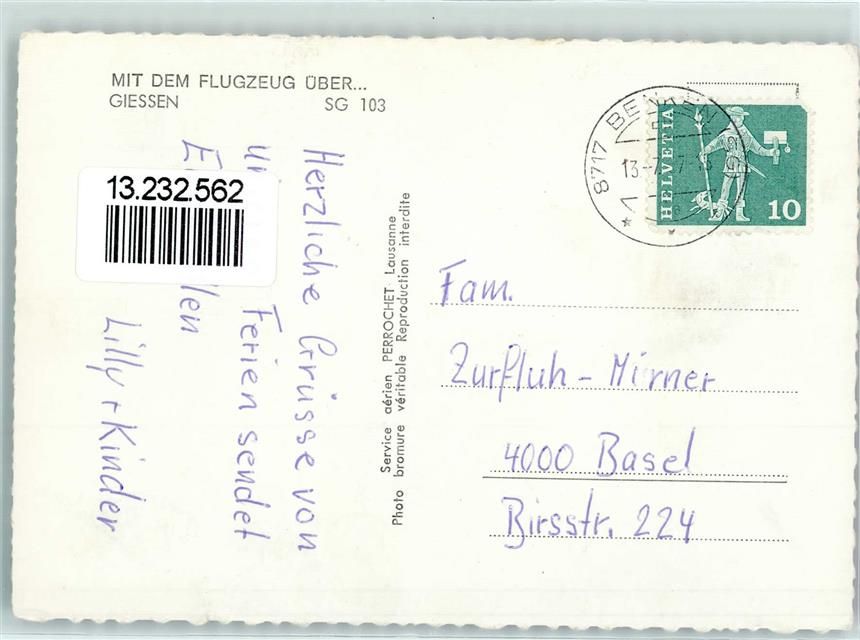 MIT DEM FLUGZEUG ÜBER...
GIESSEN SG 103
13.232.562
Herzliche Grüsse von
Ferien sendet
Lilly + Kinder
Service aérien PERROCHET Lausanne
Photo bromure véritable Reproduction interdite
8717 BENKEN
HELVETIA
10
Fam.
Zurfluh - Mirner
4000 Basel
Birsstr. 224